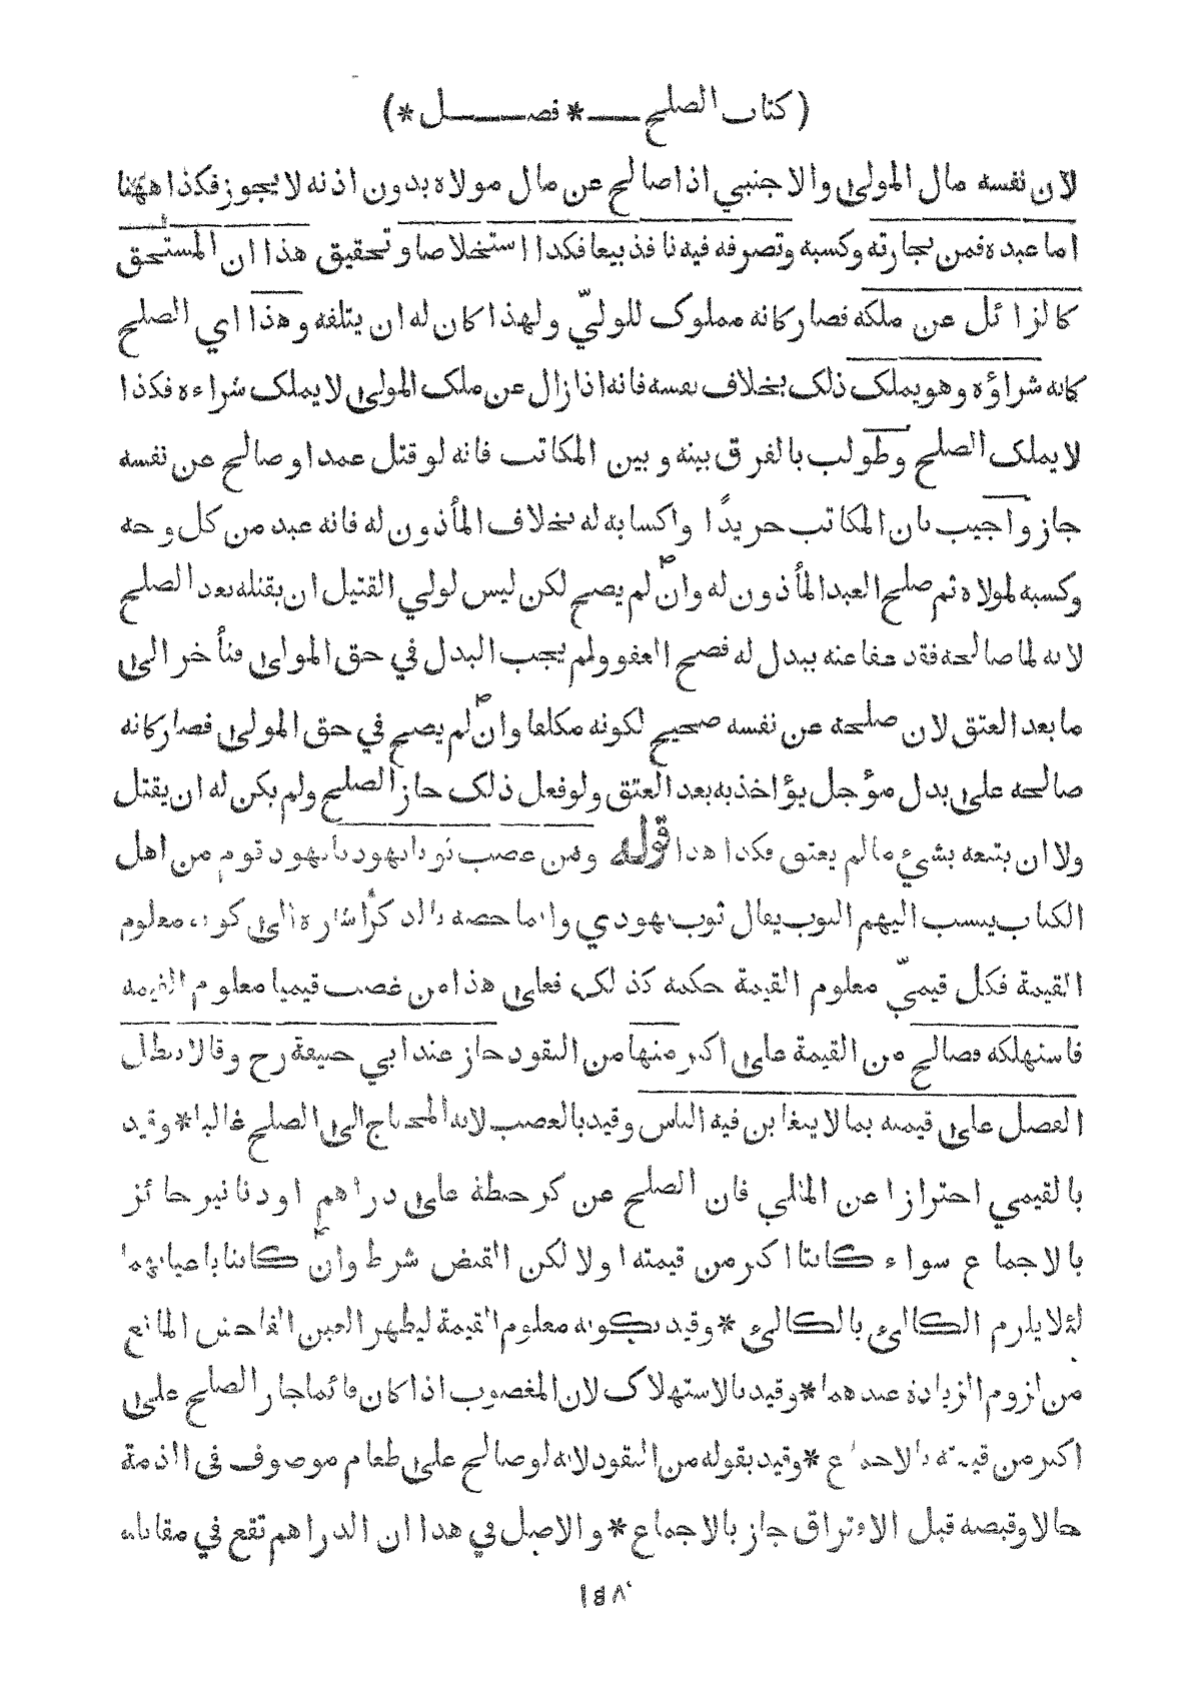 (كتاب الصلح * فصل *)
لان نفسه مال المولى والاجنبي اذا صالح عن مال مولاه بدون اذنه لا يجوز فكذا ههنا
اما عبده فمن تجارته وكسبه وتصرفه فيه نافذ بيعا فكذا استخلاصا وتحقيق هذا ان المستحق
كالزائل عن ملكه فصار كانه مملوك للوليّ ولهذا كان له ان يتلفه وهذا اي الصلح
كانه شراؤه وهو يملك ذلك بخلاف نفسه فانه اذا زال عن ملك المولى لا يملك شراءه فكذا
لا يملك الصلح وطولب بالفرق بينه وبين المكاتب فانه لو قتل عمدا وصالح عن نفسه
جاز واجيب بان المكاتب حر يدًا واكسابه له بخلاف المأذون له فانه عبد من كل وجه
وكسبه لمولاه ثم صلح العبد المأذون له وان لم يصح لكن ليس لولي القتيل ان يقتله بعد الصلح
لانه لما صالحه فقد عفا عنه ببدل له فصح العفو ولم يجب البدل في حق المولى فتأخر الى
ما بعد العتق لان صلحه عن نفسه صحيح لكونه مكلفا وان لم يصح في حق المولى فصار كانه
صالحه على بدل مؤجل يؤاخذ به بعد العتق ولو فعل ذلك جاز الصلح ولم يكن له ان يقتل
ولا ان يتبعه بشيء ما لم يعتق فكذا هذا قوله ومن غصب ثوبا يهوديا يهود قوم من اهل
الكتاب ينسب اليهم الثوب يقال ثوب يهودي وانما خصه بالذكر اشارة الى كونه معلوم
القيمة فكل قيميّ معلوم القيمة حكمه كذلك فعلى هذا من غصب قيميا معلوم القيمة
فاستهلكه فصالح من القيمة على اكثر منها من النقود جاز عند ابي حنيفة رح وقالا يبطل
الفضل على قيمته بما لا يتغابن فيه الناس وقيد بالغصب لانه المحتاج الى الصلح غالبا * وقيد
بالقيمي احترازا عن المثلي فان الصلح عن كر حنطة على دراهم او دنانير جائز
بالاجماع سواء كانتا اكثر من قيمته او لا لكن القبض شرط وان كانتا باعيانهما
لئلا يلزم الكالئ بالكالئ * وقيد بكونه معلوم القيمة ليظهر الغبن الفاحش المانع
من لزوم الزيادة عندهما * وقيد بالاستهلاك لان المغصوب اذا كان قائما جاز الصلح على
اكثر من قيمته بالاجماع * وقيد بقوله من النقود لانه لو صالح على طعام موصوف في الذمة
حالا وقبضه قبل الافتراق جاز بالاجماع * والاصل في هذا ان الدراهم تقع في مقابلة